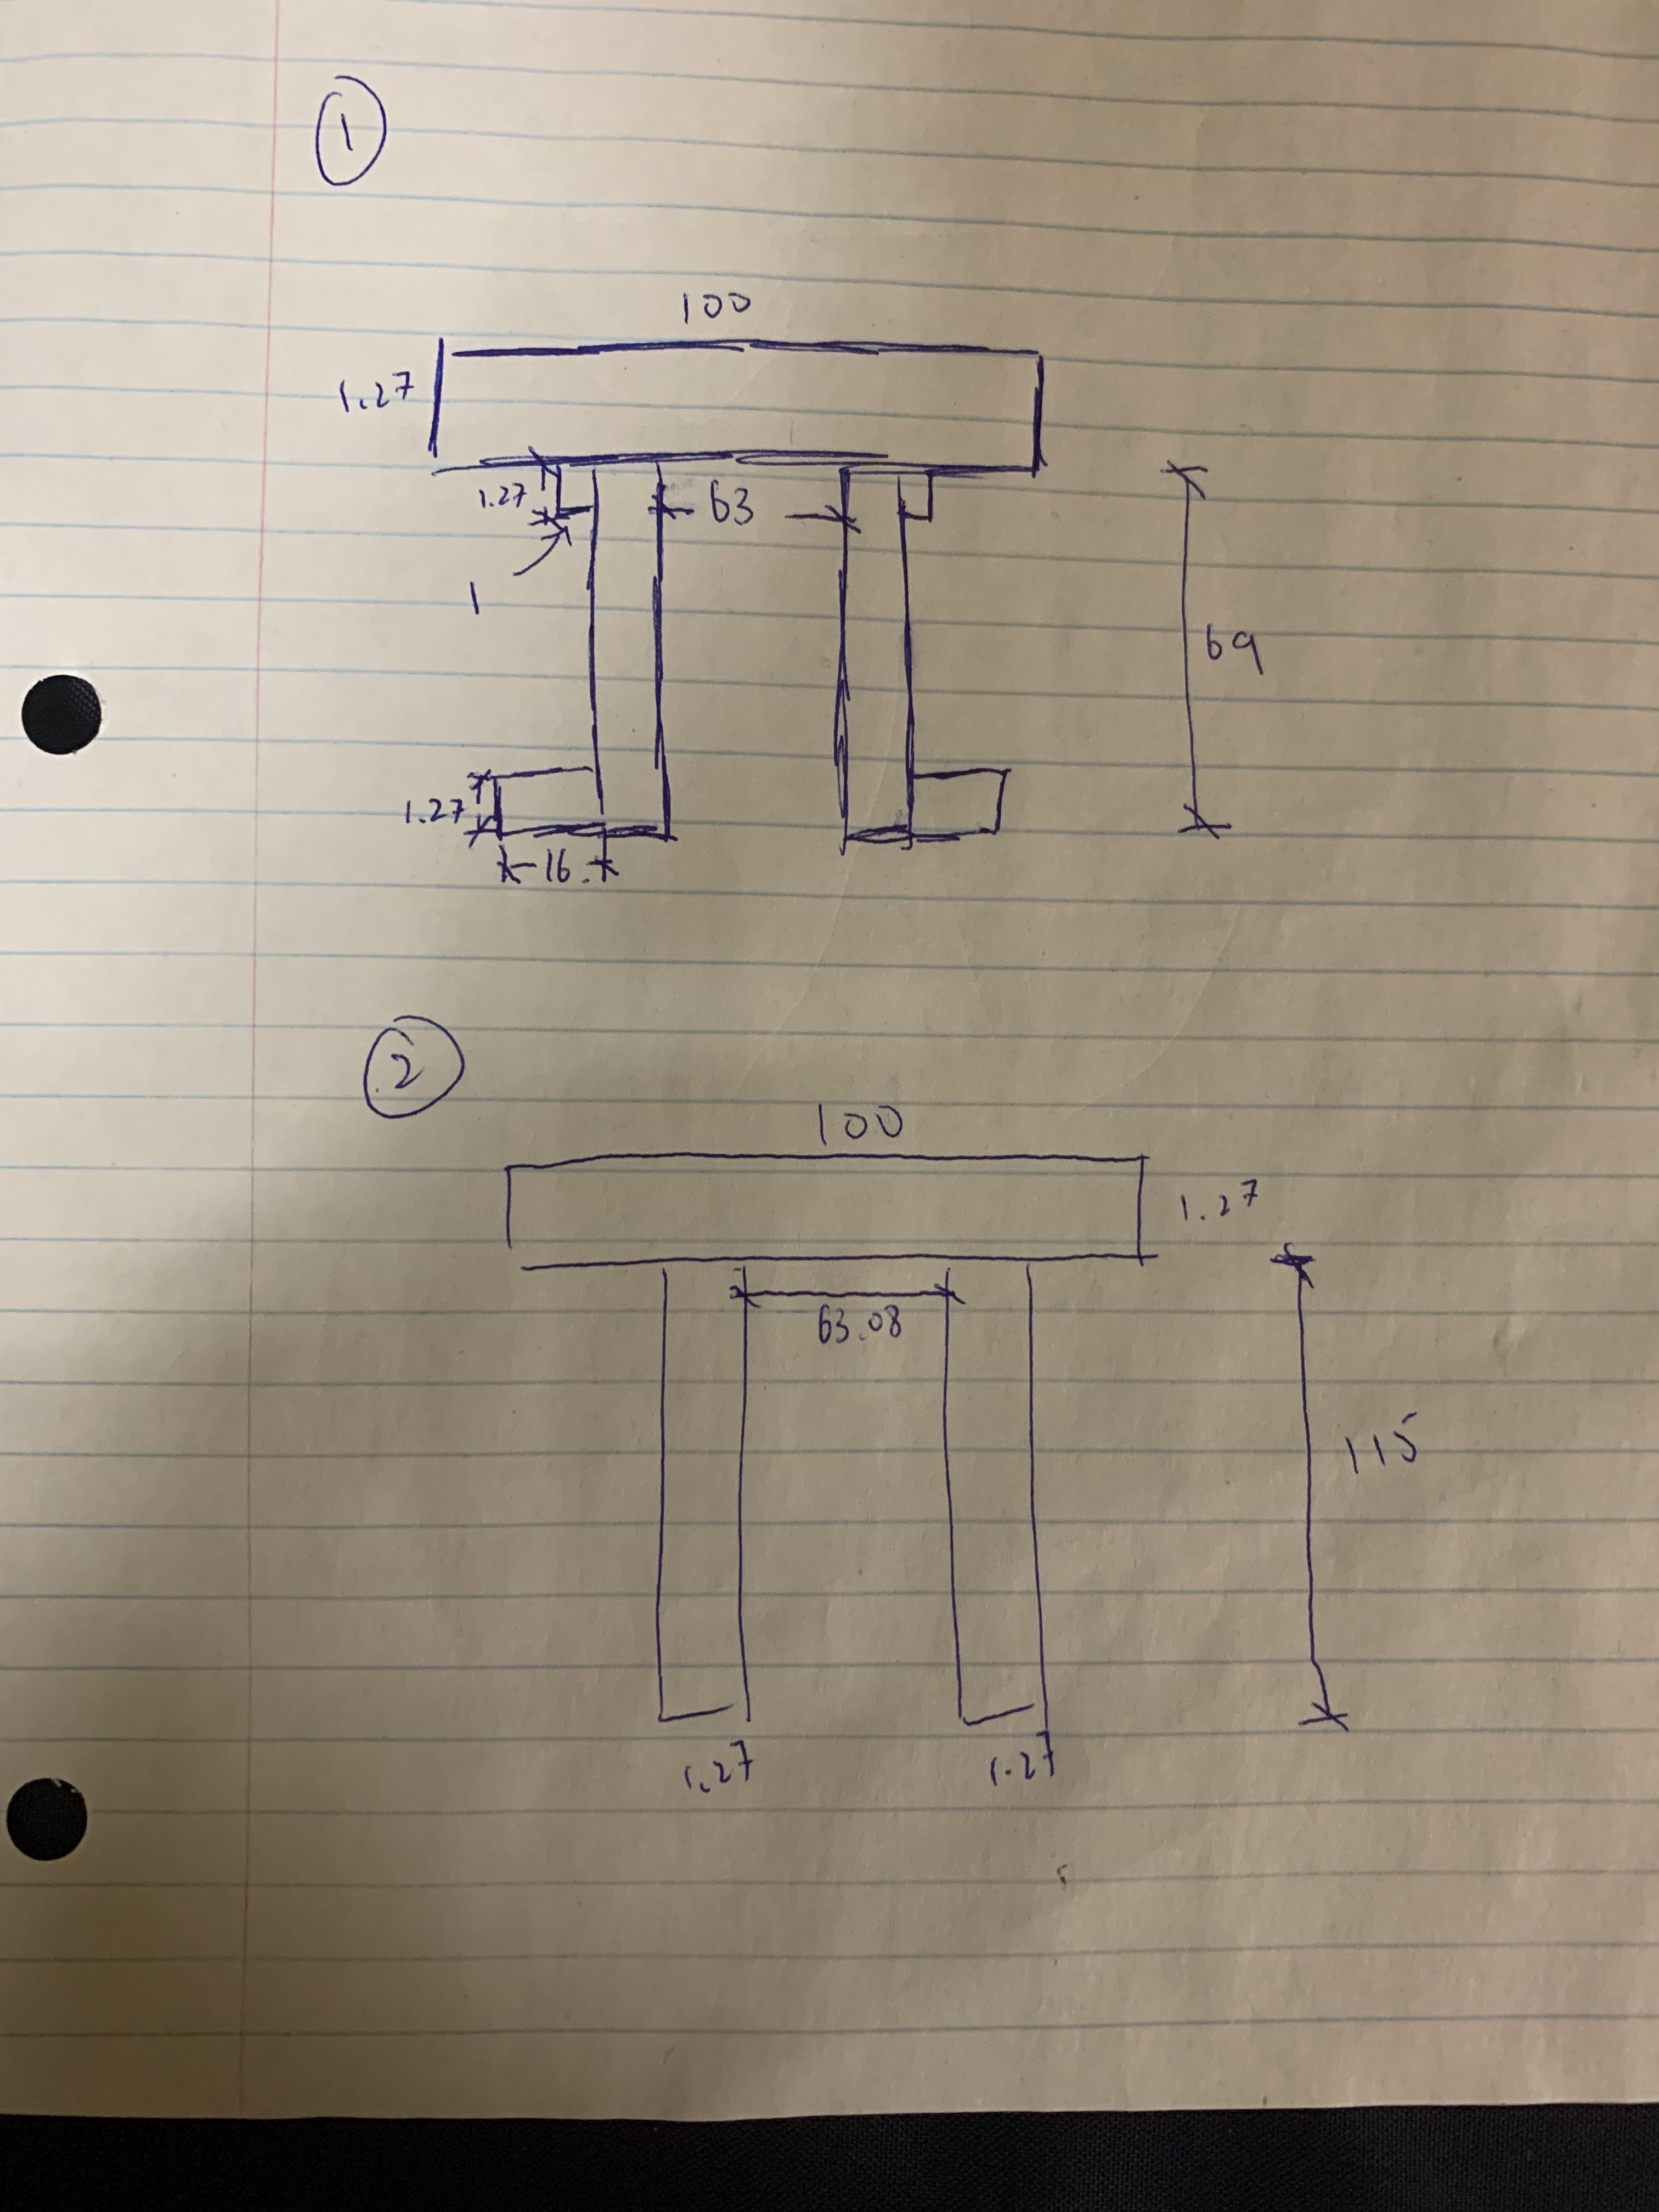 1
100
1.27
1.27
63
1
69
1.27
16
2
100
1.27
63.08
115
1.27
1.27